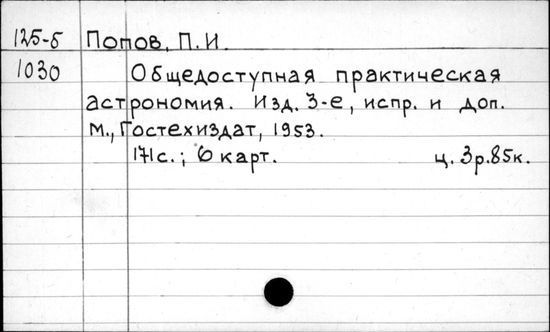 125-б Попов, П.И.
1030 Общедоступная практическая
астрономия. Изд. 3-е, испр. и доп.
М., Гостехиздат, 1953.
171с.; 6 карт. ц. 3р.85к.